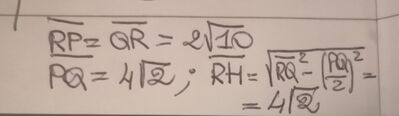 R̅P̅ = Q̅R̅ = 2√10
P̅Q̅ = 4√2 ; R̅H̅ = √(R̅Q̅² - (P̅Q̅/2)²) =
= 4√2